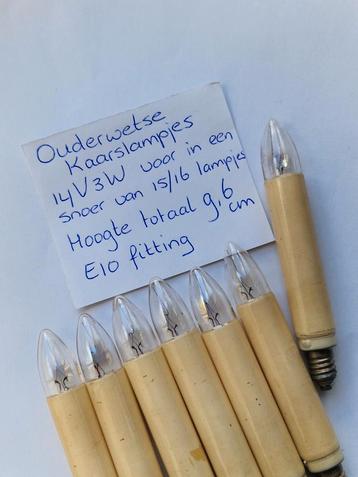 Ouderwetse
Kaarslampjes
14V3W voor in een
snoer van 15/16 lampjes
Hoogte totaal 9,6 cm
E10 fitting